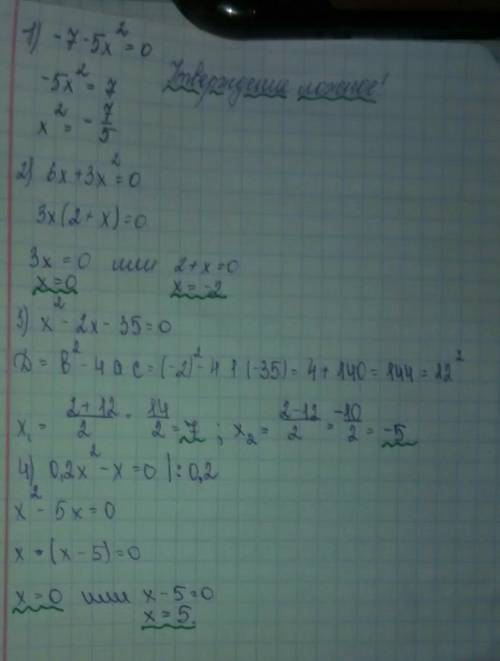 1) -7-5x²=0
-5x²=7 Утверждение ложное!
x²=-7/5
2) 6x+3x²=0
3x(2+x)=0
3x=0 или 2+x=0
x=0 x=-2
3) x²-2x-35=0
D=b²-4ac=(-2)²-4·1(-35)=4+140=144=12²
x₁=(2+12)/2=14/2=7; x₂=(2-12)/2=-10/2=-5
4) 0,2x²-x=0 |:0,2
x²-5x=0
x·(x-5)=0
x=0 или x-5=0
x=5.